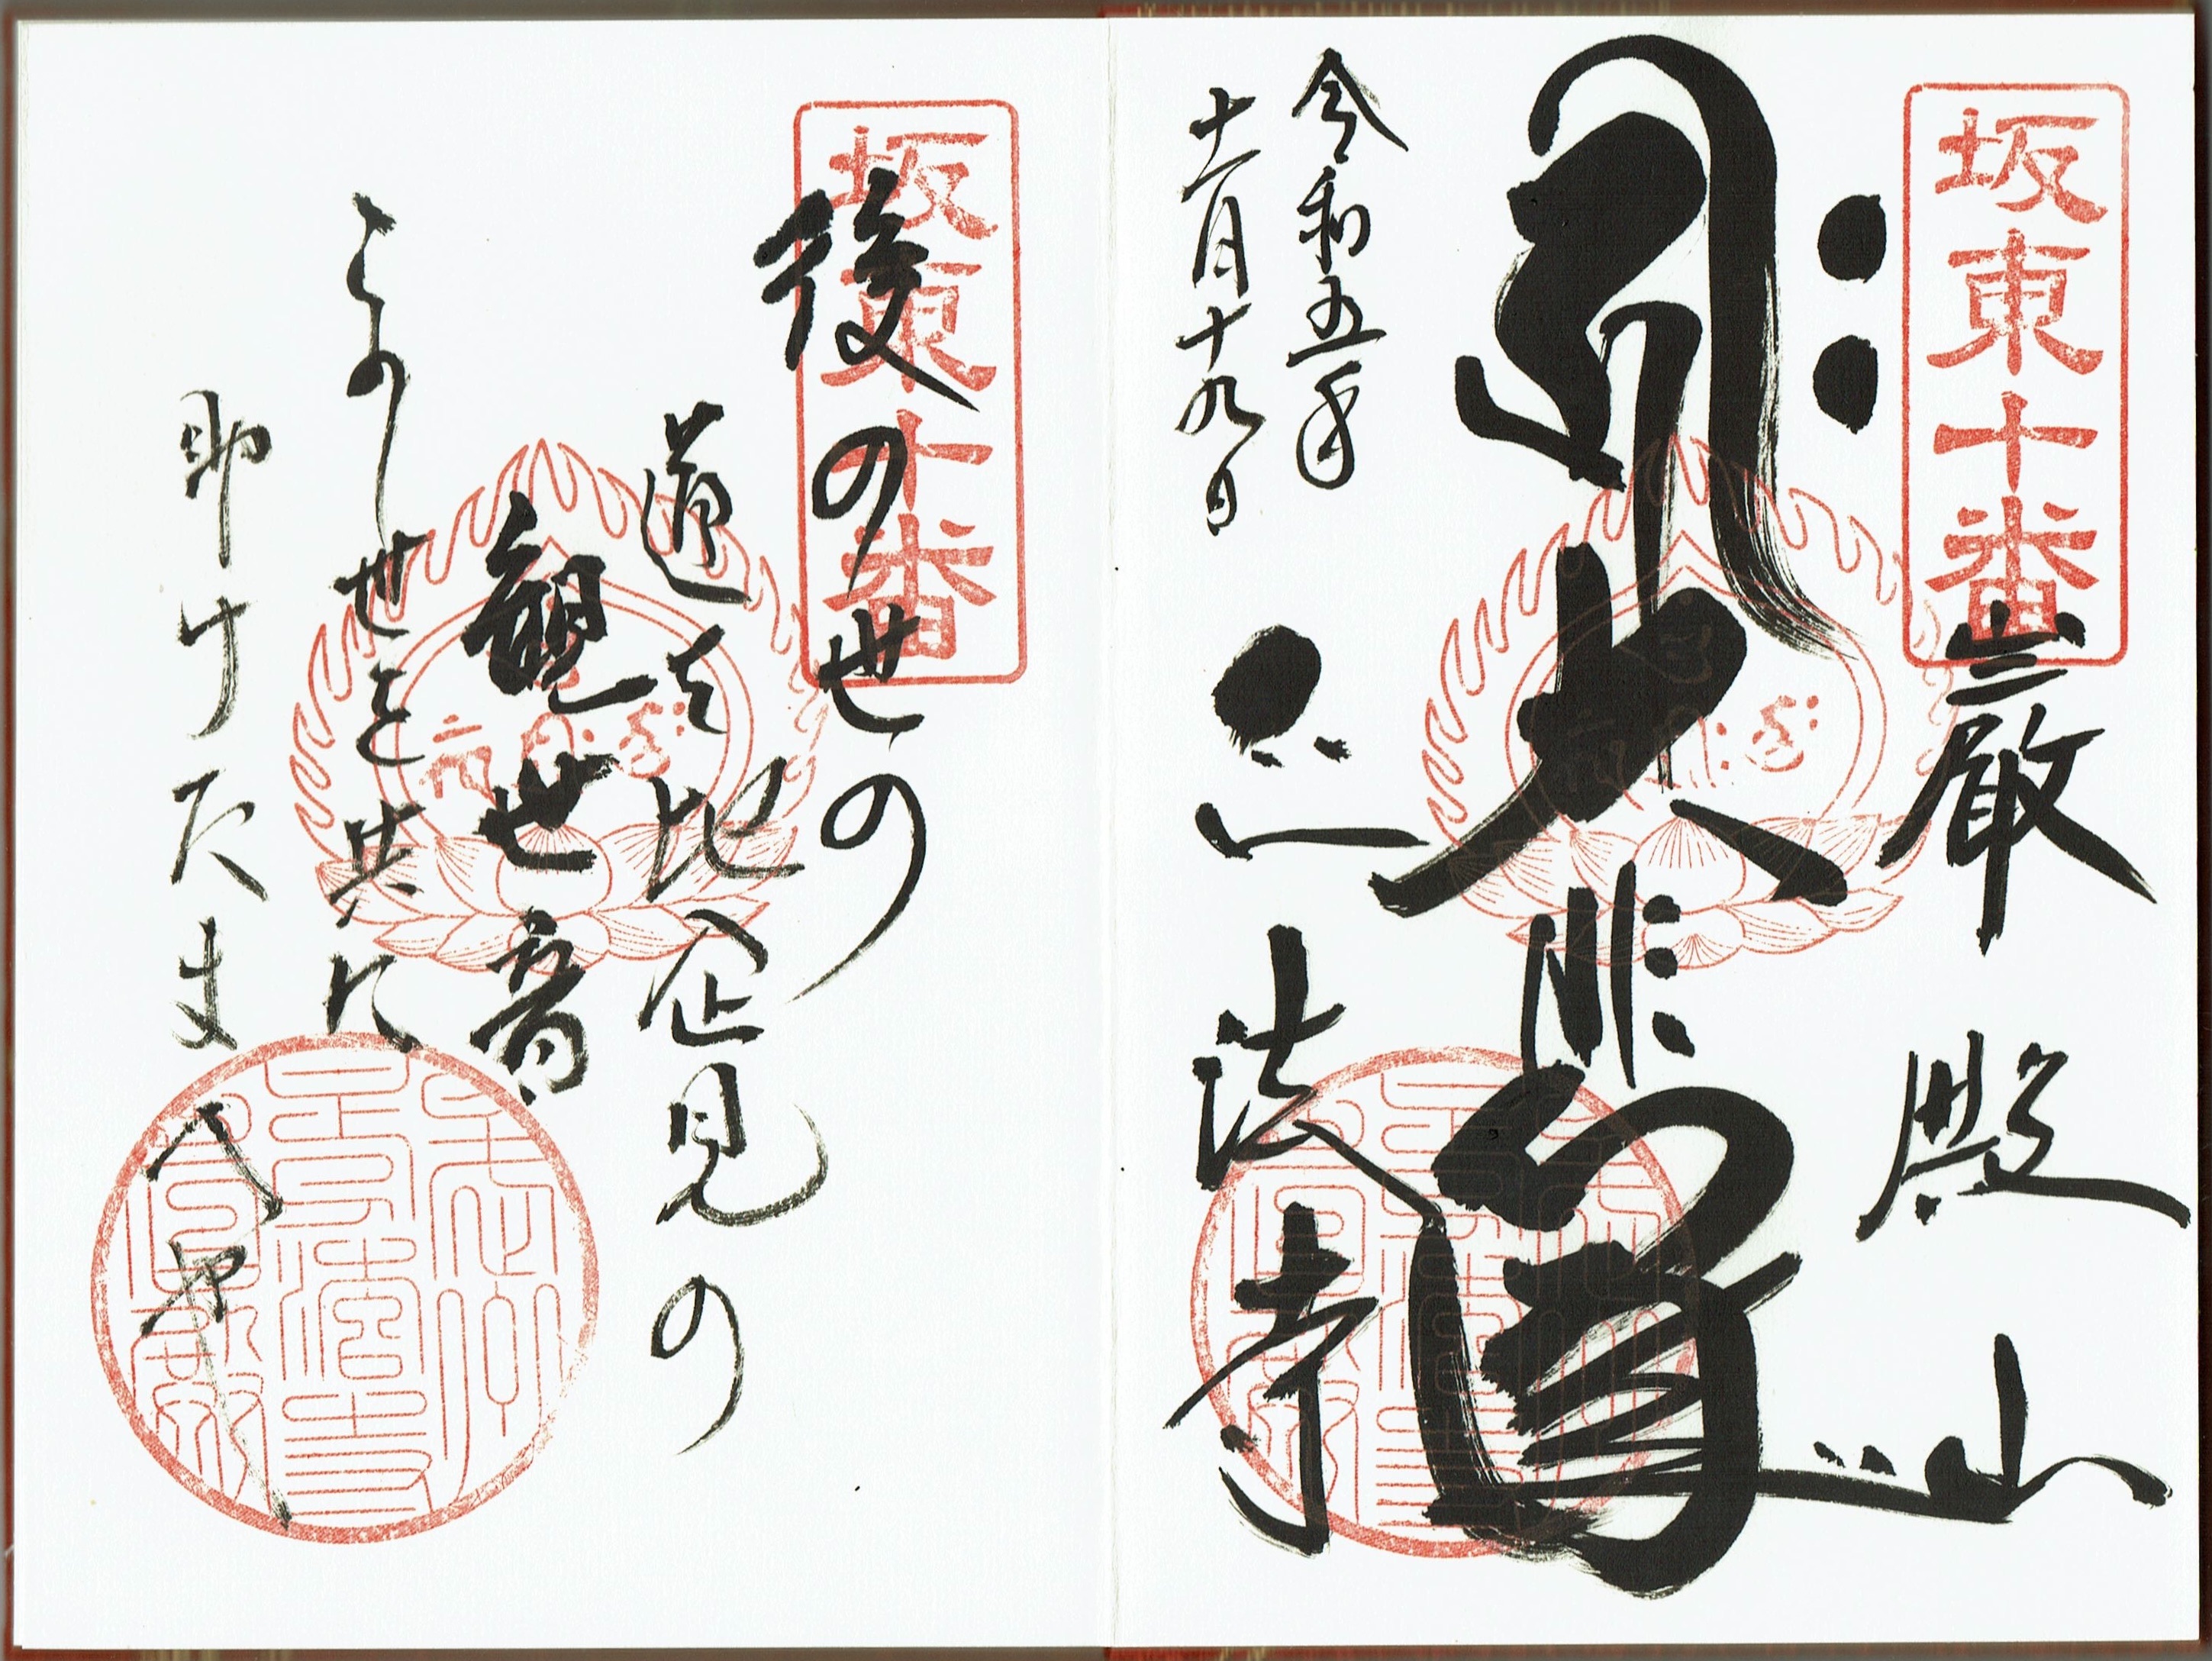 坂東十番
巌殿山
大悲
令和五年
十一月十九日
正法寺
坂東十番
後の世の
道を比企見の
観世音
この世を共に
助けたまへや